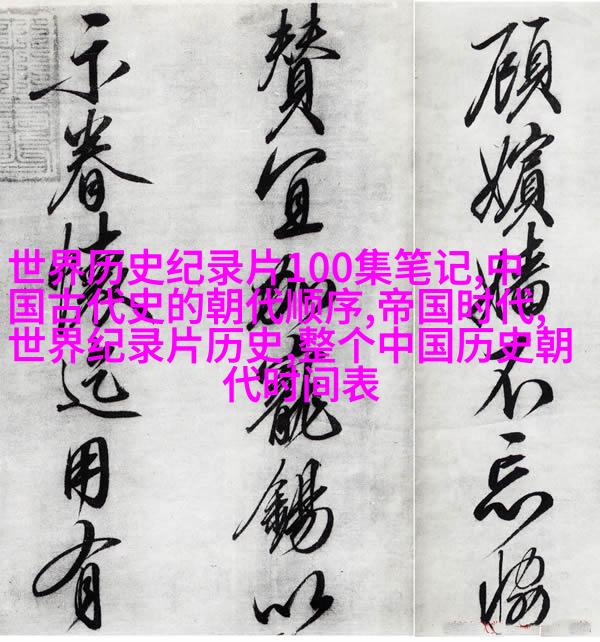 世界历史纪录片100集笔记,中
国古代史的朝代顺序,帝国时代,
世界纪录片历史,整个中国历史朝
代时间表
顧嬪嬙不忘協
贊宜寵錫以
示眷懷迄用有